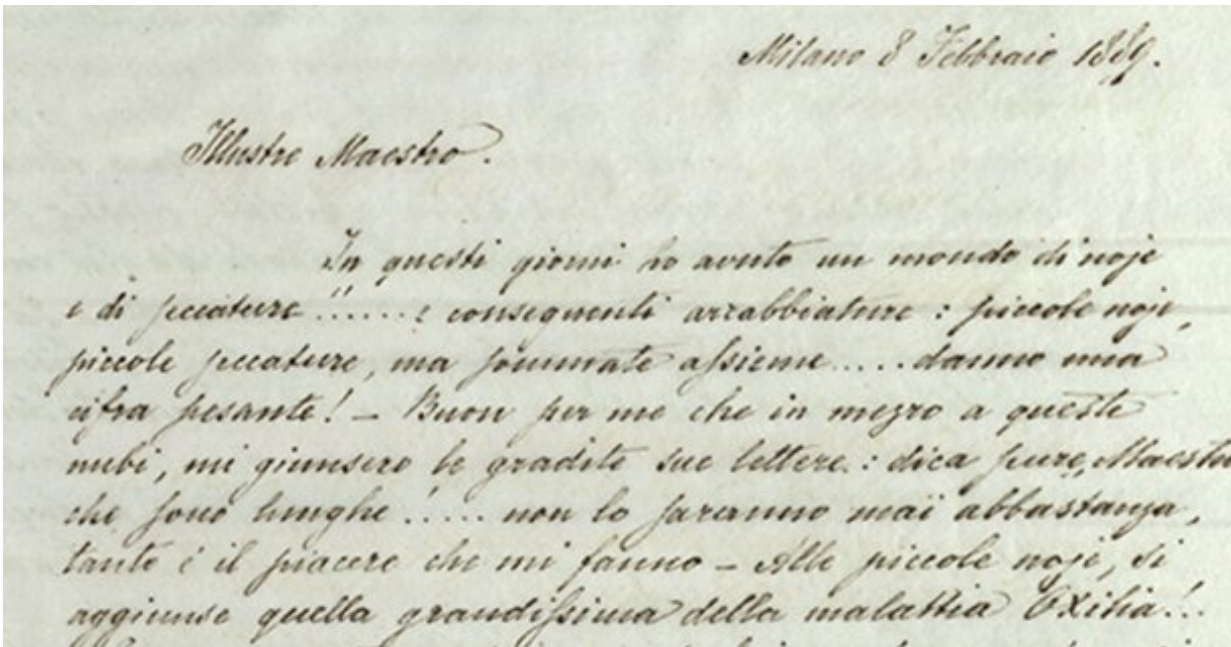 Milano 8 Febbraio 1889.
Illustre Maestro.
In questi giorni ho avuto un mondo di noje
e di seccature!...... e conseguenti arrabbiature: piccole noje,
piccole seccature, ma sommate assieme..... danno una
cifra pesante! – Buon per me che in mezzo a queste
nubi, mi giunsero le gradite sue lettere: dica pure, Maestro
che sono lunghe!..... non lo saranno mai abbastanza,
tanto è il piacere che mi fanno – Alle piccole noje, si
aggiunse quella grandissima della malattia Oxilia!..